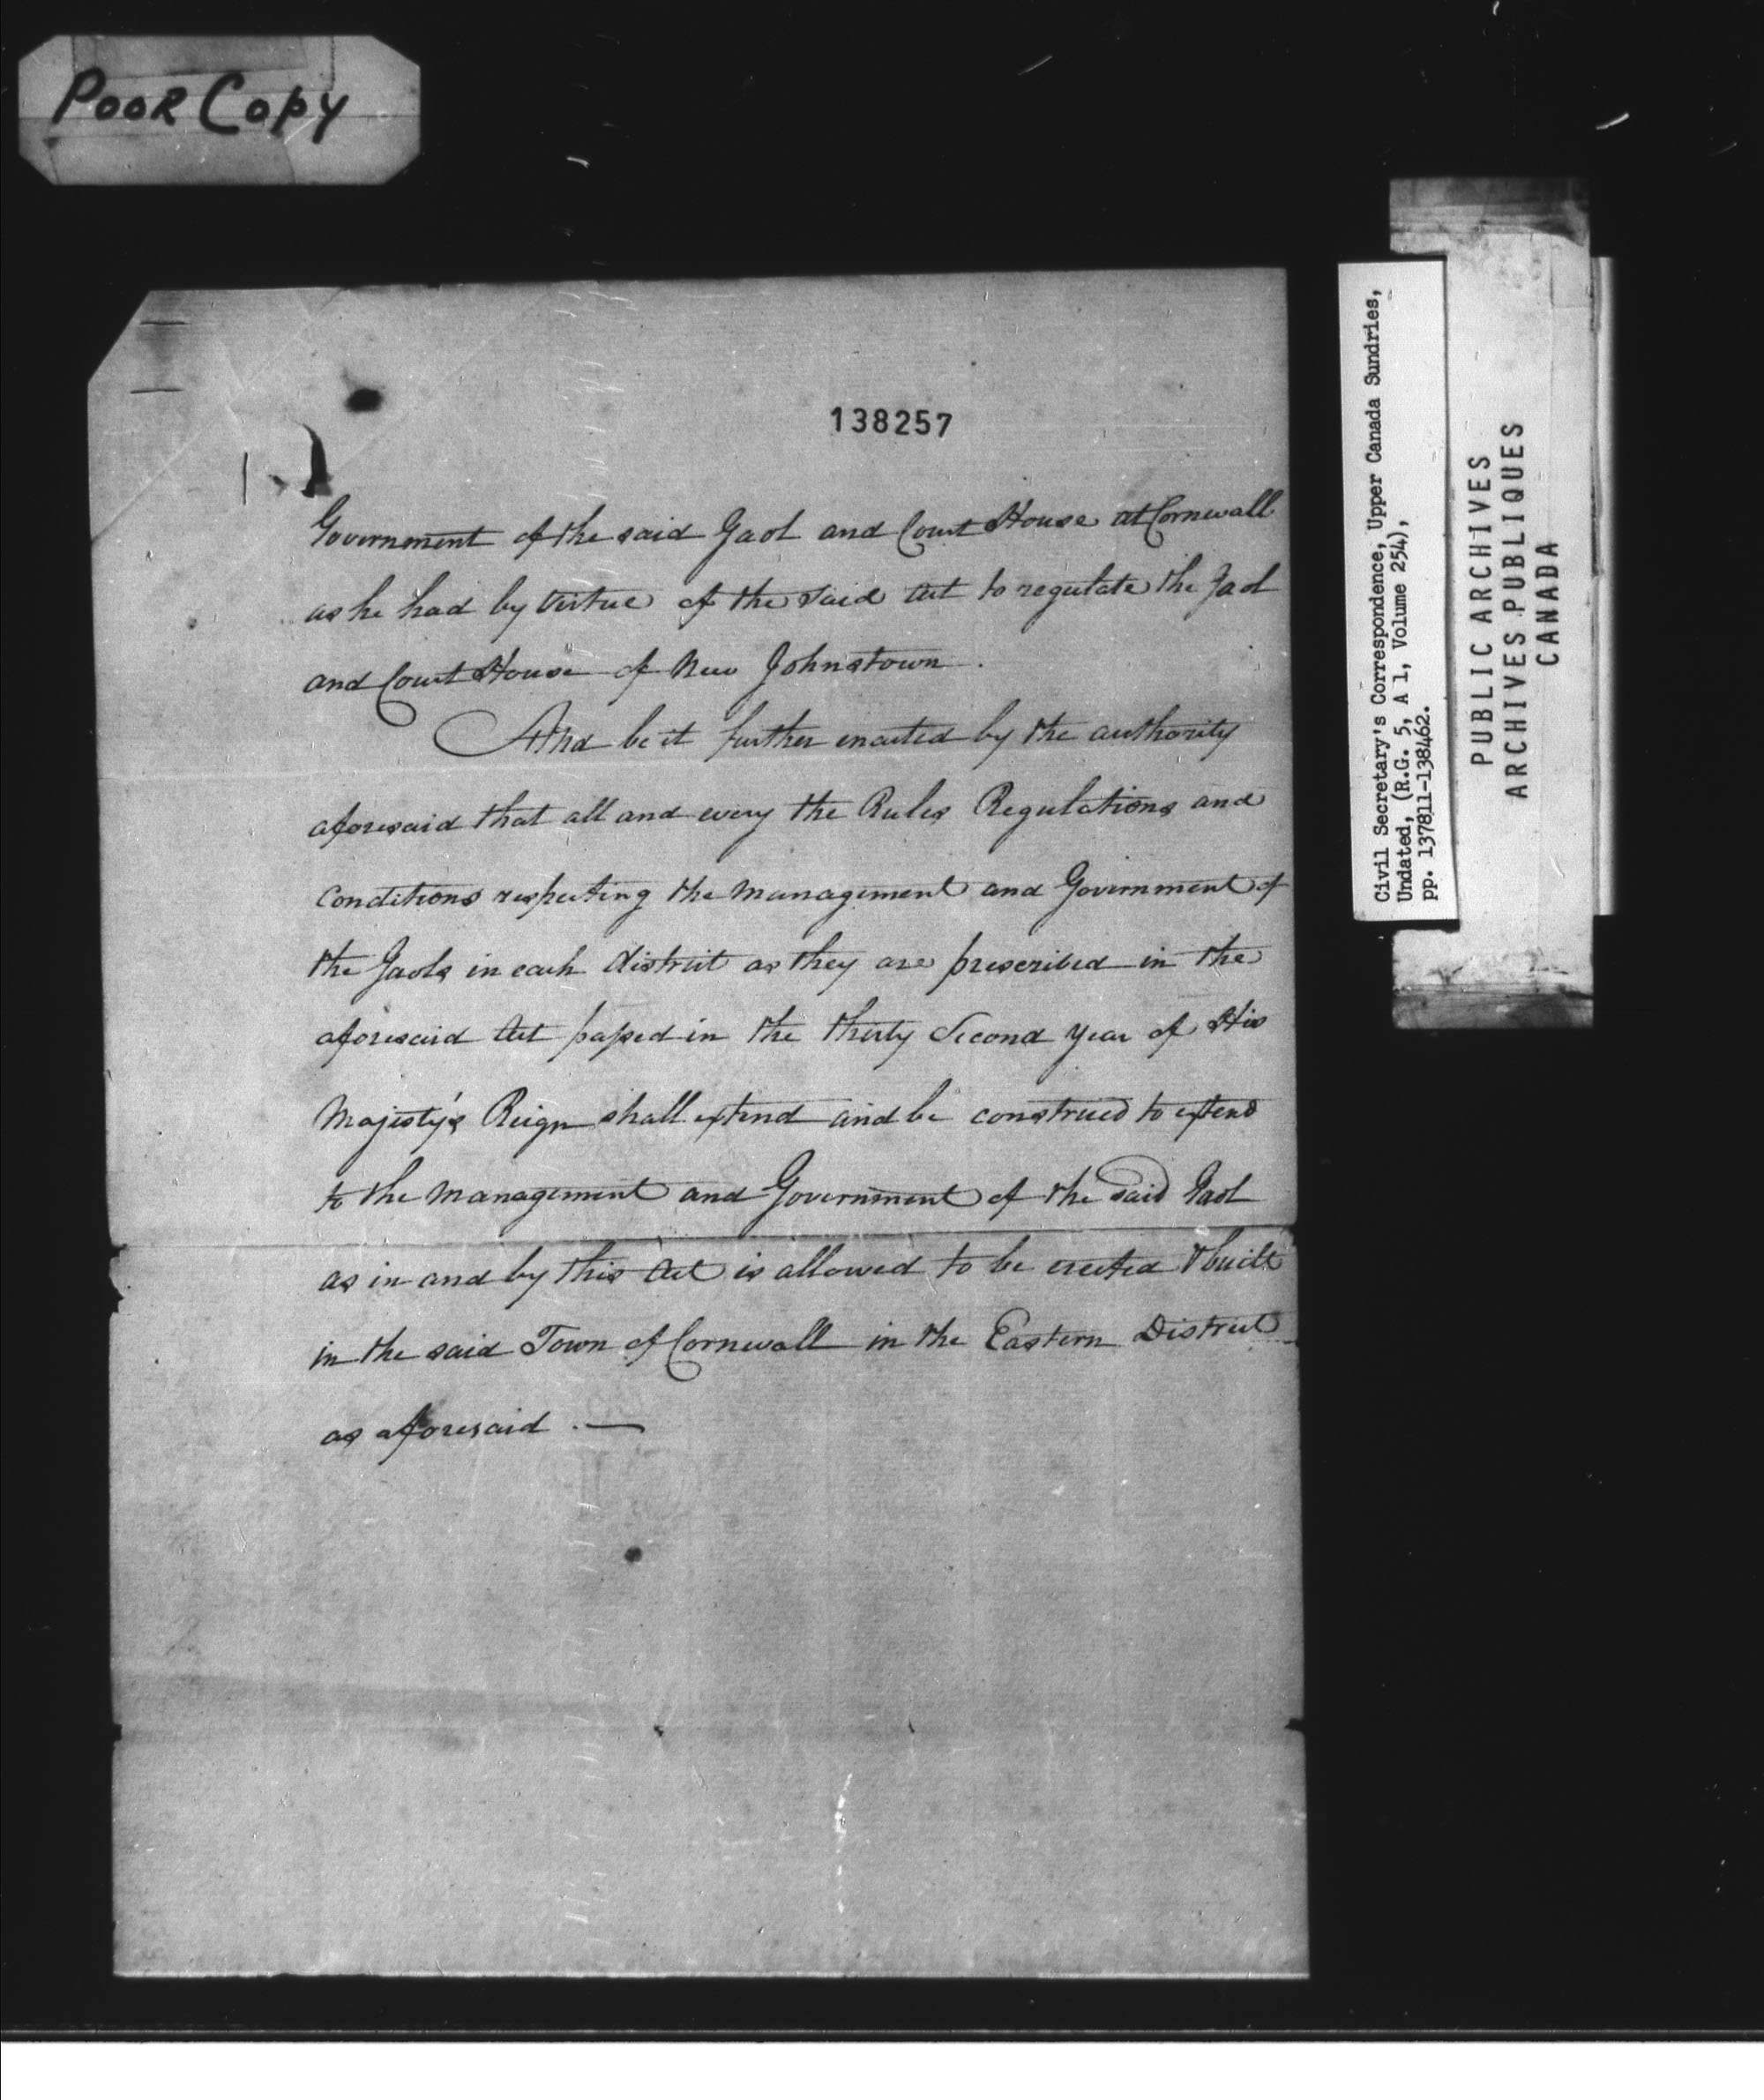 Poor Copy
138257
Government of the said Gaol and Court House at Cornwall
as he had by virtue of the said Act to regulate the Gaol
and Court House of New Johnstown .
And be it further enacted by the authority
aforesaid that all and every the Rules Regulations and
Conditions respecting the Management and Government of
the Gaols in each District as they are prescribed in the
aforesaid Act paſsed in the thirty Second year of His
Majesty's Reign shall extend and be construed to extend
to the Management and Government of the said Gaol
as in and by this Act is allowed to be erected & built
in the said Town of Cornwall in the Eastern District
as aforesaid . —
Civil Secretary's Correspondence, Upper Canada Sundries,
Undated, (R.G. 5, A 1, Volume 254),
pp. 137811-138462.
PUBLIC ARCHIVES
ARCHIVES PUBLIQUES
CANADA